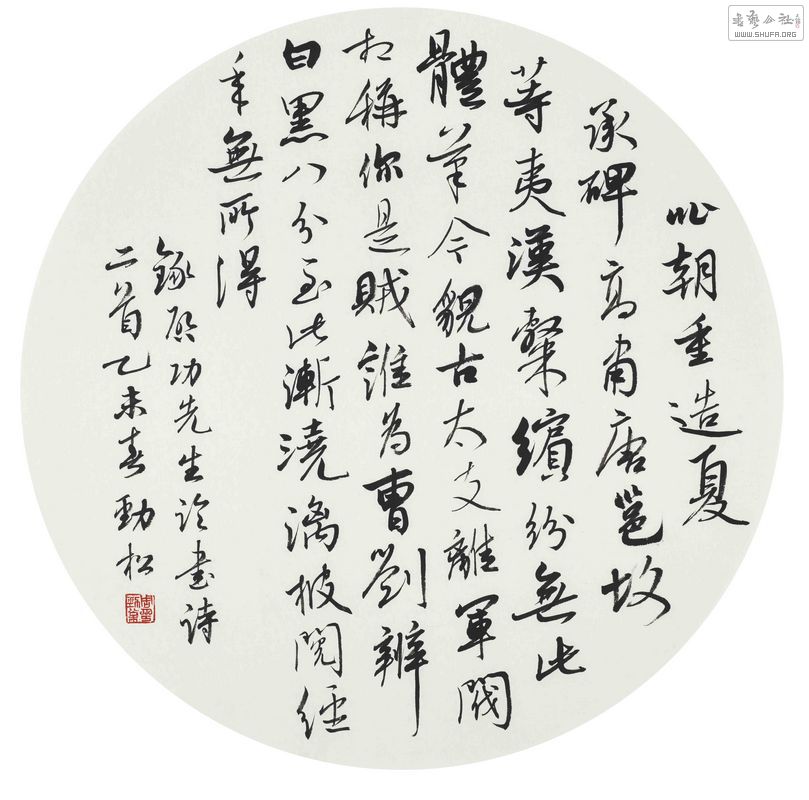 明朝重造夏
承碑高肅唐邕故
等夷漢隸繽紛無此
體筆今貌古太支離軍閥
相稱你是賊誰為曹劉辨
白黑八分至此漸澆漓披閱經
年無所得
錄啟功先生論書詩
二首乙未春勁松
書藝公社
WWW.SHUFA.ORG